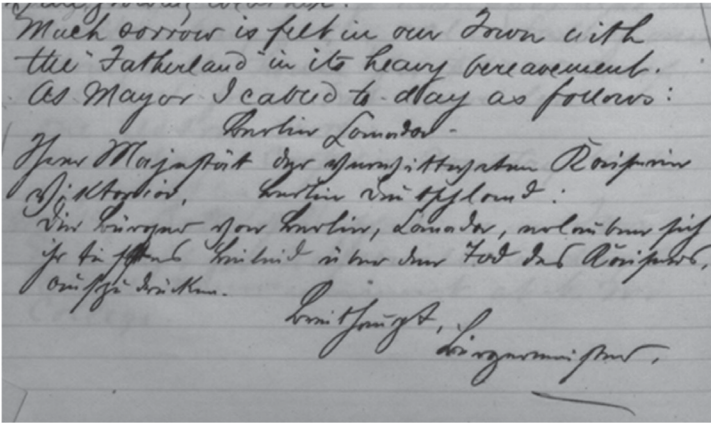 Much sorrow is felt in our Town with
the "Fatherland" in its heavy bereavement.
As Mayor I cabled to-day as follows:
Berlin Canada.
Ihrer Majestät der verwittweten Kaiserin
Viktoria, Berlin Deutschland:
Die Bürger von Berlin, Canada, erlauben sich
ihr tiefstes Beileid über den Tod des Kaisers,
auszudrücken.
Breithaupt,
Bürgermeister.